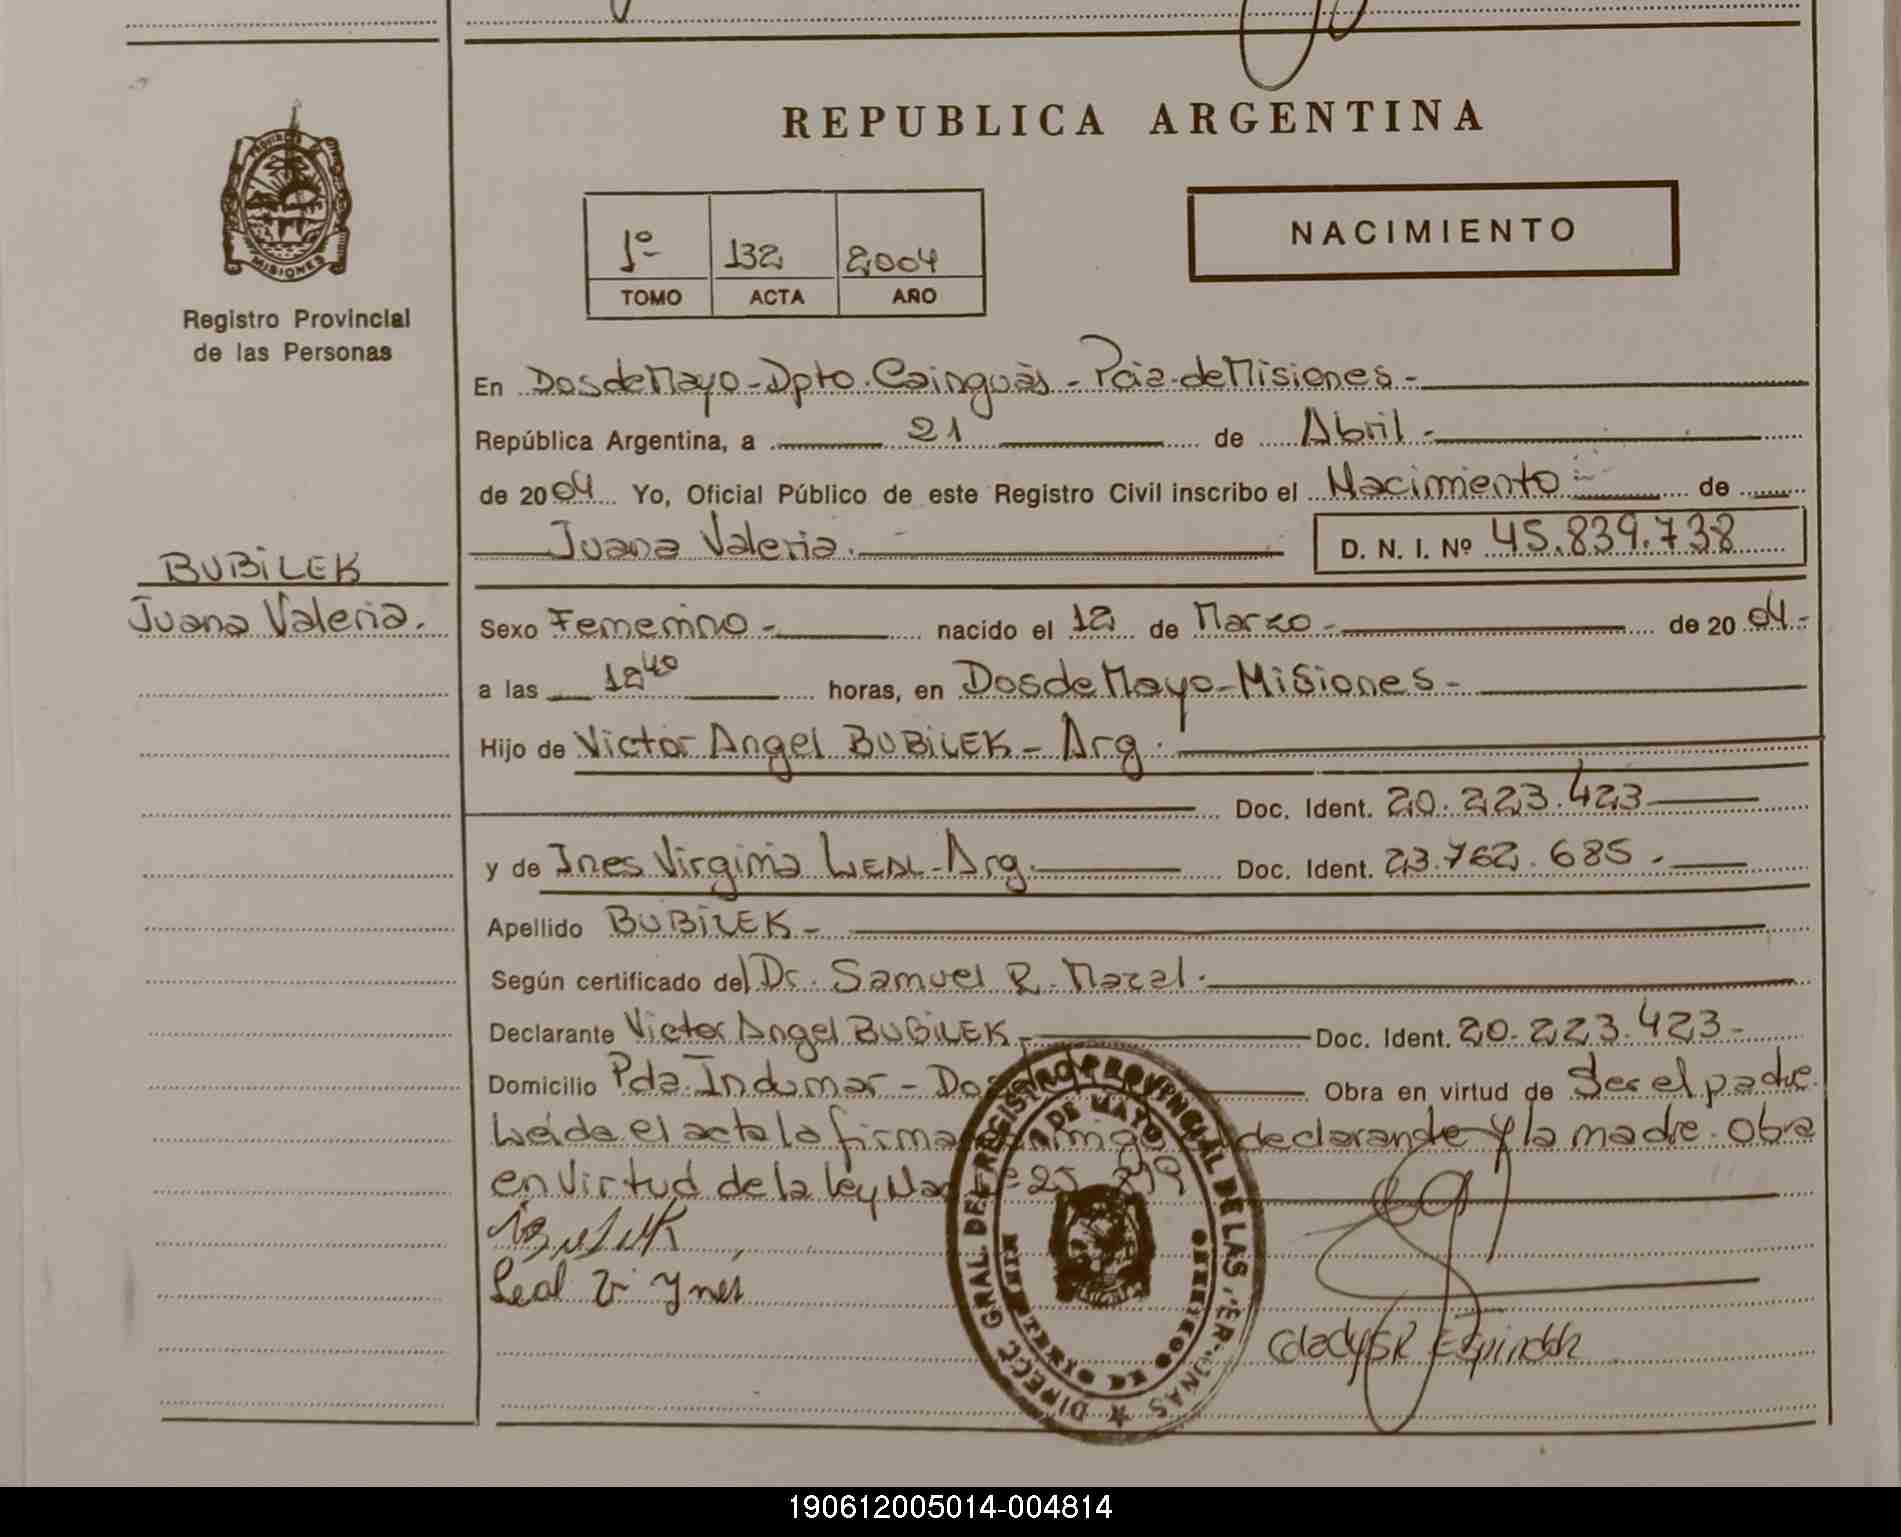 REPUBLICA ARGENTINA
PROVINCIA
MISIONES
Registro Provincial
de las Personas
1º 132 2004
TOMO ACTA AÑO
NACIMIENTO
En Dos de Mayo - Dpto. Cainguás - Pcia. de Misiones -
República Argentina, a 21 de Abril -
de 2004 Yo, Oficial Público de este Registro Civil inscribo el Nacimiento - de
Juana Valeria. D. N. I. Nº 45.839.738
BUBILEK
Juana Valeria.
Sexo Femenino - nacido el 12 de Marzo - de 2004 -
a las 12 40 horas, en Dos de Mayo - Misiones -
Hijo de Victor Angel BUBILEK - Arg.
Doc. Ident. 20.223.423
y de Ines Virginia LEAL - Arg. Doc. Ident. 23.762.685.
Apellido BUBILEK -
Según certificado del Dr. Samuel R. Mazal.
Declarante Victor Angel BUBILEK - Doc. Ident. 20.223.423 -
Domicilio Pda. Indumar - Obra en virtud de Ser el padre.
Leída el acta la firma declarante y la madre. Obra
en virtud de la ley 25
Leal V. Ynes
Gladys R Espindola
DIRECC. GRAL. DEL REGISTRO PROVINCIAL DE LAS PERSONAS
DE MAYO
190612005014-004814